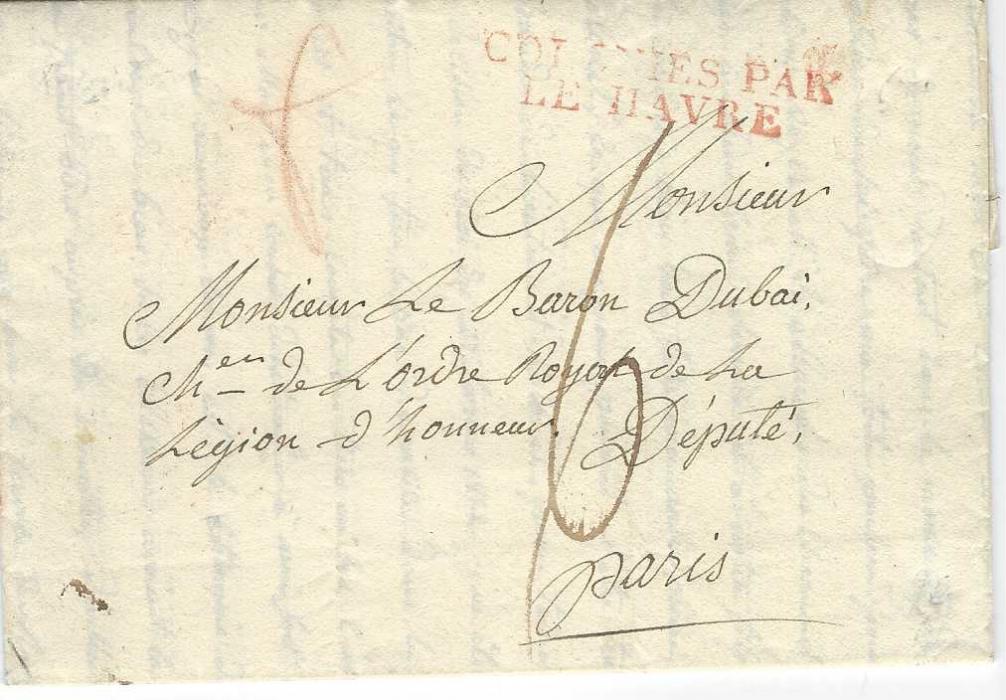 COLONIES PAR
LE HAVRE
Monsieur
Monsieur Le Baron Dubai,
Ch.er de L'ordre Royal de La
Légion d'honneur. Député,
paris
6